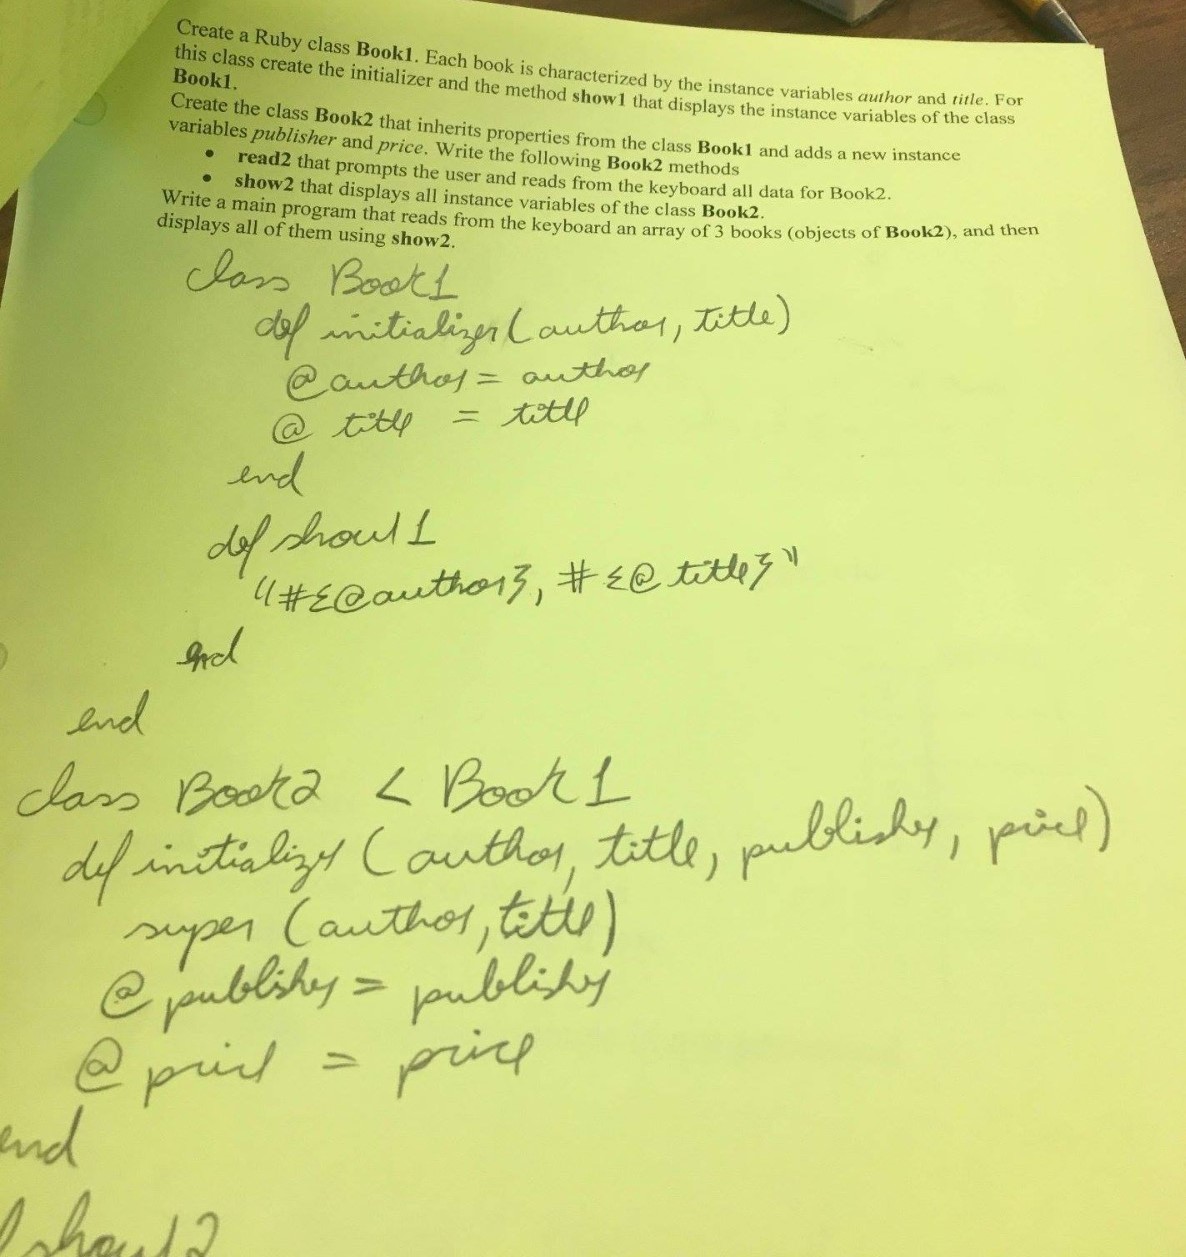 Create a Ruby class Book1. Each book is characterized by the instance variables author and title. For
this class create the initializer and the method show1 that displays the instance variables of the class
Book1.
Create the class Book2 that inherits properties from the class Book1 and adds a new instance
variables publisher and price. Write the following Book2 methods
• read2 that prompts the user and reads from the keyboard all data for Book2.
• show2 that displays all instance variables of the class Book2.
Write a main program that reads from the keyboard an array of 3 books (objects of Book2), and then
displays all of them using show2.
class Book1
def initializer(author, title)
@author = author
@ title = title
end
def show1
"#{@author}, #{@title}"
end
end
class Book2 < Book1
def initializer (author, title, publisher, price)
super (author, title)
@ publisher = publisher
@ price = price
end
show2